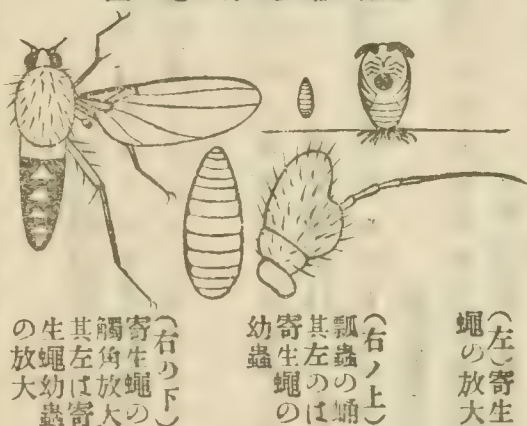 (左)寄生
蠅の放大
(右ノ上)
瓢蟲の蛹
其左のは
寄生蠅の
幼蟲
(右の下)
寄生蠅の
觸角放大
其左は寄
生蠅幼蟲
の放大